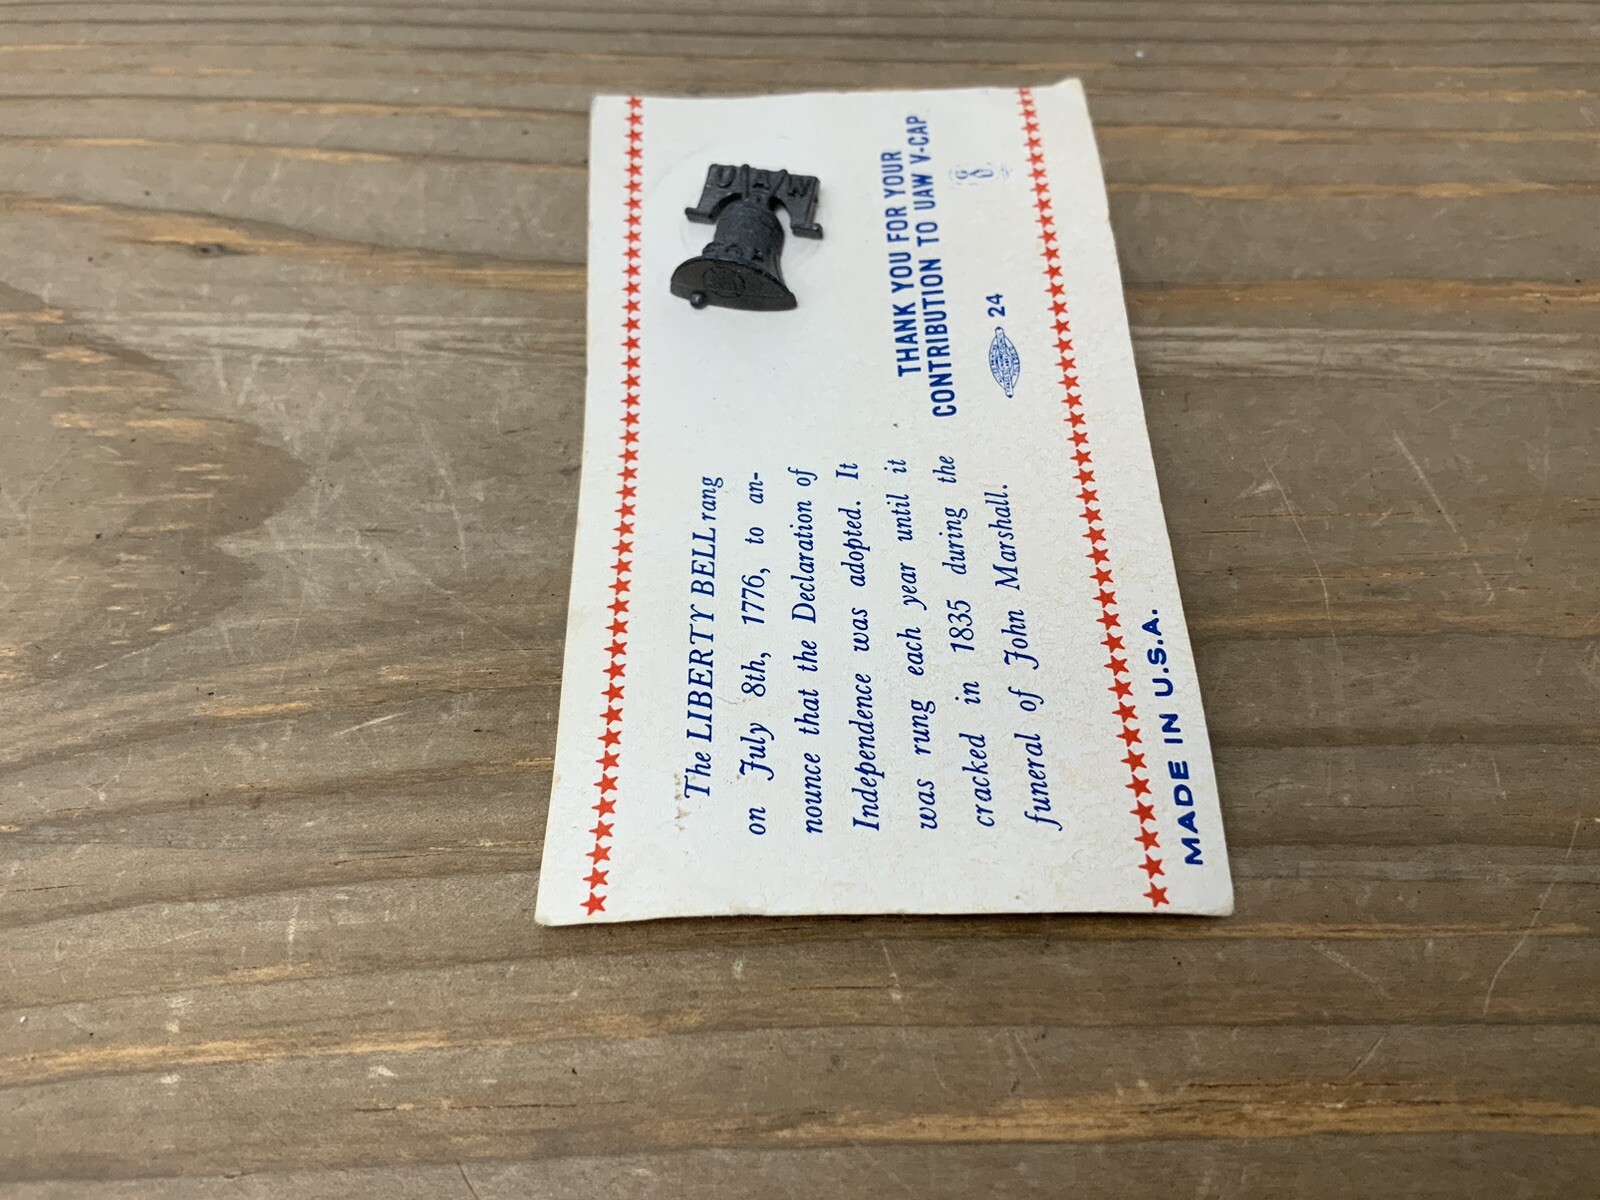 The LIBERTY BELL rang
on July 8th, 1776, to an-
nounce that the Declaration of
Independence was adopted. It
was rung each year until it
cracked in 1835 during the
funeral of John Marshall.
UAW
THANK YOU FOR YOUR
CONTRIBUTION TO UAW V-CAP
24
MADE IN U.S.A.